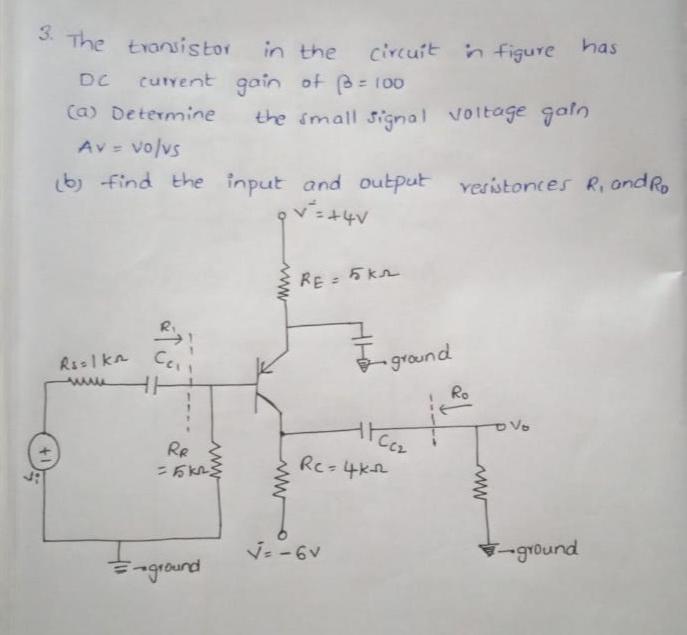 3. The transistor in the circuit in figure has
DC current gain of β = 100
(a) Determine the small signal voltage gain
AV = VO/VS
(b) find the input and output resistonces Ri and Ro
V⁻ = +4V
RE = 5 kΩ
Ri
Rs = 1 kΩ
CC1
ground
Ro
Vo
CC2
RR
= 5 kΩ
RC = 4kΩ
Vi
V⁻ = -6V
ground
ground